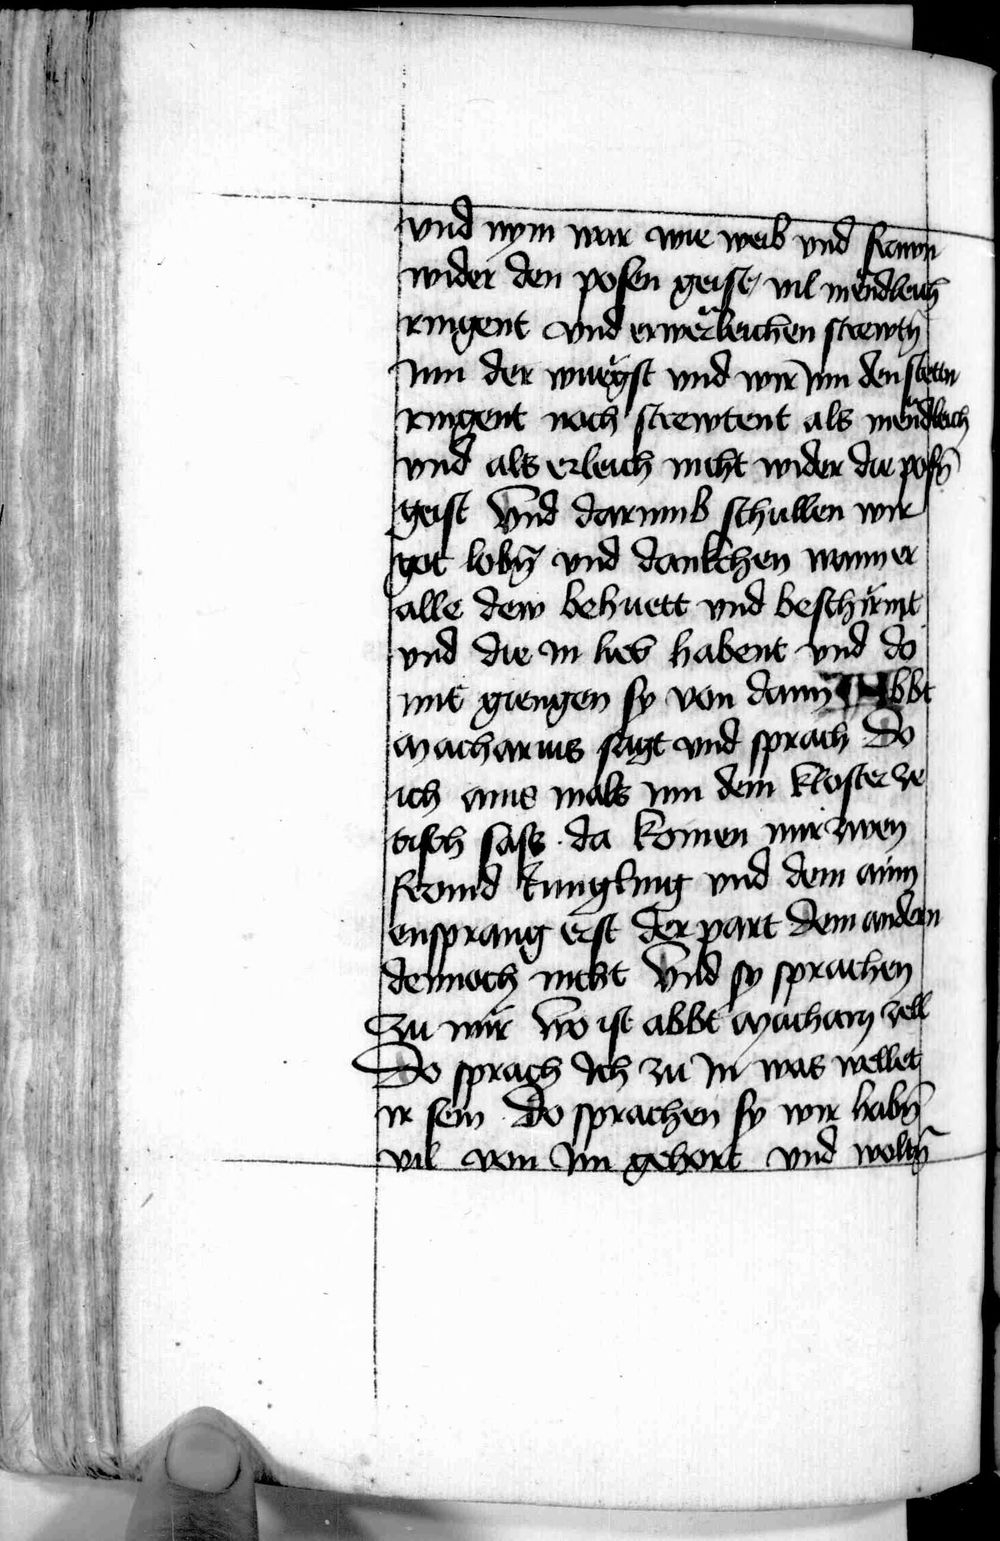 vnd nym war wie weib vnd frawn
wider den posen geist vil mendleich
ringent vnd erwerleichen streitn̄
Inn der wuegst vnd wir Inn den stetin
ringent noch streytent als mendleich
vnd als erleich nicht wider die posn̄
geist Vnd darumb schullen wir
got lobn̄ vnd dankchen wann er
alle dew behuett vnd beschirmt
vnd die in lieb habent vnd do
mit giengen sy von dann Abbt
Macharius sagt vnd sprach Do
ich ains mals inn dem kloster ze
tisch sass · da komen mir zwen
fromd Iungling vnd dem aim
ensprang erst der part dem andern
dennoch nicht Vnd sy sprachen
zu mir Wo ist abbt Macharij zell
Do sprach Ich zu in was wellet
ir sein · Do sprachen sy wir habn̄
vil von Im gehort vnd woltn̄